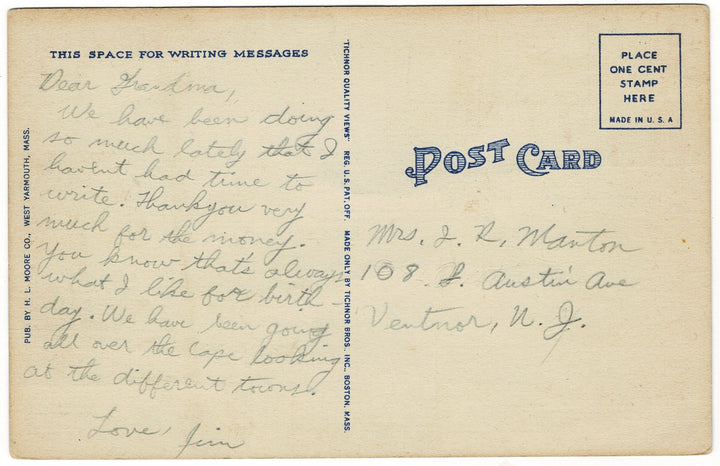 THIS SPACE FOR WRITING MESSAGES
Dear Grandma,
We have been doing
so much lately that I
havent had time to
write. Thankyou very
much for the money.
You know that's always
what I like for birth-
day. We have been going
all over the Cape looking
at the different towns.
Love, Jim
PUB. BY H. L. MOORE CO., WEST YARMOUTH, MASS.
"TICHNOR QUALITY VIEWS" REG. U. S. PAT. OFF. MADE ONLY BY TICHNOR BROS. INC., BOSTON, MASS.
PLACE
ONE CENT
STAMP
HERE
MADE IN U. S. A
POST CARD
Mrs. J. R. Manton
108 Austin Ave
Ventnor, N. J.